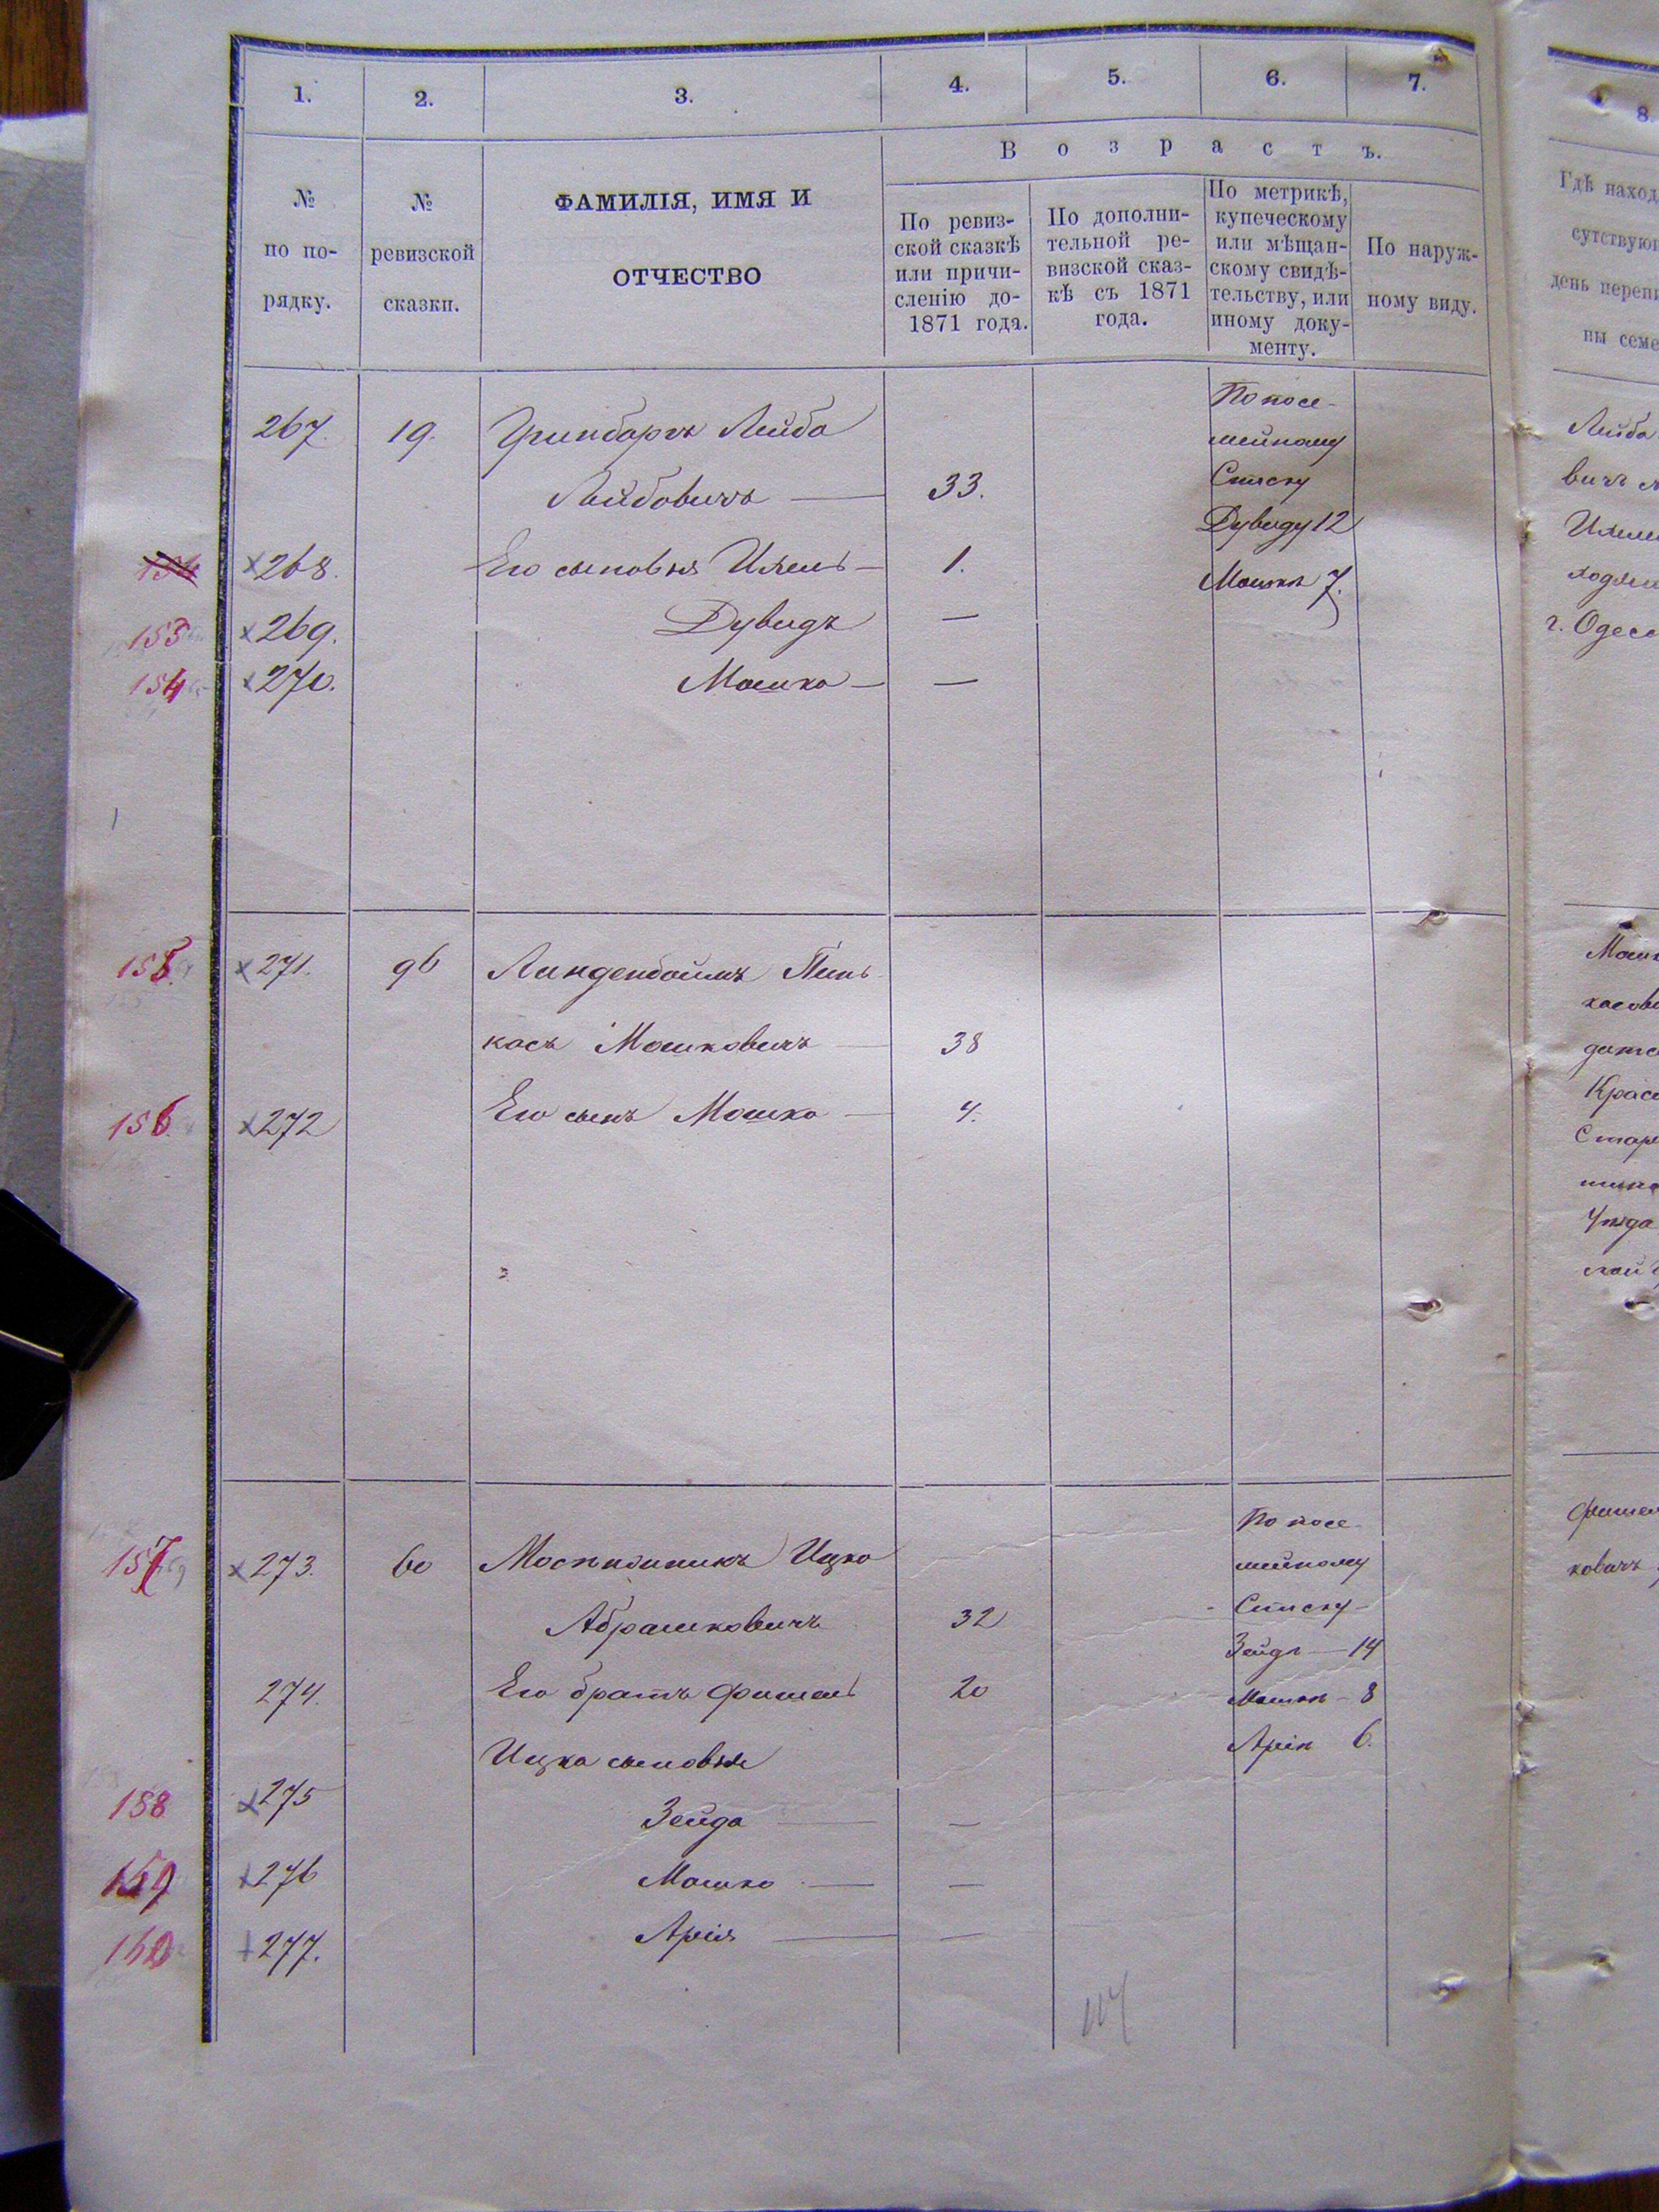 1. 2. 3. 4. 5. 6. 7.
В о з р а с т ъ.
№ по порядку.
№ ревизской сказки.
ФАМИЛІЯ, ИМЯ И
ОТЧЕСТВО
По ревиз-
ской сказкѣ
или причи-
сленію до-
1871 года.
По дополни-
тельной ре-
визской сказ-
кѣ съ 1871
года.
По метрикѣ,
купеческому
или мѣщан-
скому свидѣ-
тельству, или
иному доку-
менту.
По наруж-
ному виду.
267. 19. Гринбаргъ Лейба
Лейбовичъ — 33.
По посе-
мейному
Списку
Дувиду 12
Мошкѣ 7.
×268. Его сыновья — 1.
153 ×269. Дувидъ —
154 ×270. Мошко — —
155. ×271. 96 Линденбоймъ Пинь-
касъ Мошковичъ — 38
156. ×272 Его сынъ Мошко — 4.
157 ×273. 60 Ицко
Абрашковичъ 32
По посе-
мейному
Списку
Зейдѣ — 14
Мошкѣ — 8
Аріи 6.
274. Его братъ Фишель 20
Ицка сыновья
158 ×275 Зейда — —
159 ×276 Мошко — —
160 +277. Арія — —
8.
Гдѣ наход
сутствую
день переп
ны семе
Лейба
вичъ
г. Одесс
Мошк
касов
Крас
Стар
Уѣзда
ской
Фишел
ковичъ